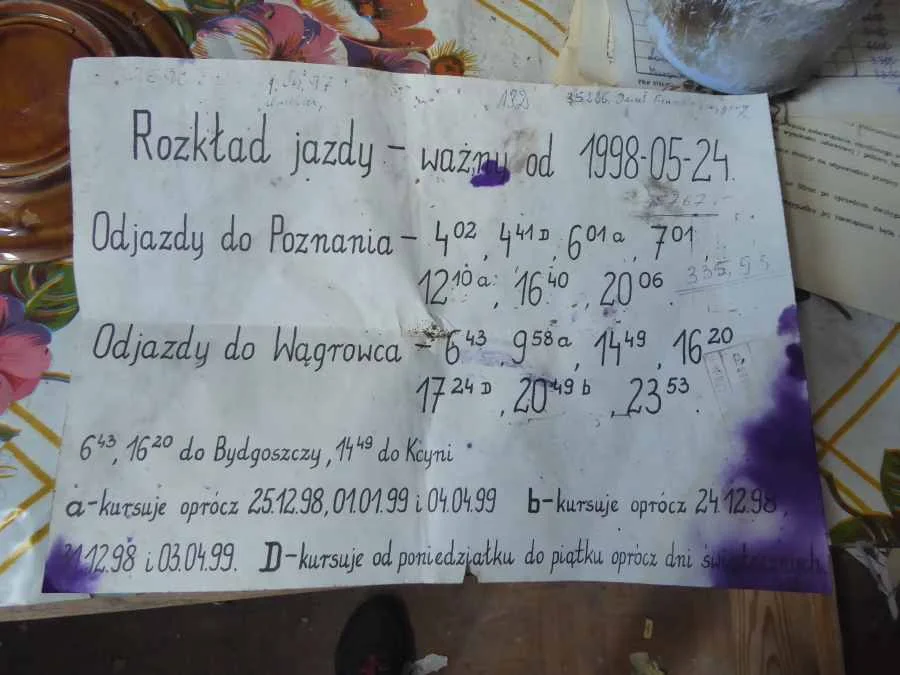 132
Rozkład jazdy - ważny od 1998-05-24.
267
Odjazdy do Poznania - 4⁰², 4⁴¹ D, 6⁰¹ a, 7⁰¹,
12¹⁰ a, 16⁴⁰, 20⁰⁶.
335,55
Odjazdy do Wągrowca - 6⁴³, 9⁵⁸ a, 14⁴⁹, 16²⁰
17²⁴ D, 20⁴⁹ b, 23⁵³.
6⁴³, 16²⁰ do Bydgoszczy, 14⁴⁹ do Kcyni
a-kursuje oprócz 25.12.98, 01.01.99 i 04.04.99 b-kursuje oprócz 24.12.98,
31.12.98 i 03.04.99. D-kursuje od poniedziałku do piątku oprócz dni świątecznych.